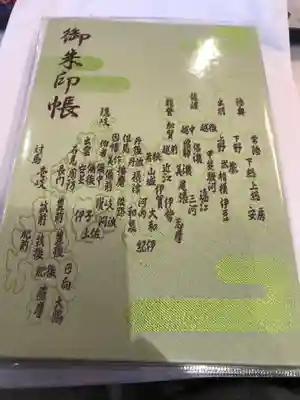 御朱印帳
陸奥
出羽
常陸
下野
下総
上総
安房
上野
武蔵
相模
伊豆
佐渡
越後
越中
信濃
甲斐
駿河
遠江
能登
加賀
飛騨
美濃
三河
越前
近江
伊勢
志摩
若狭
山城
伊賀
大和
丹後
丹波
摂津
河内
紀伊
但馬
播磨
淡路
和泉
隠岐
因幡
美作
伯耆
備前
讃岐
阿波
出雲
備後
伊予
土佐
石見
安芸
長門
周防
対馬
壱岐
筑前
豊前
豊後
肥前
筑後
肥後
日向
薩摩
大隅